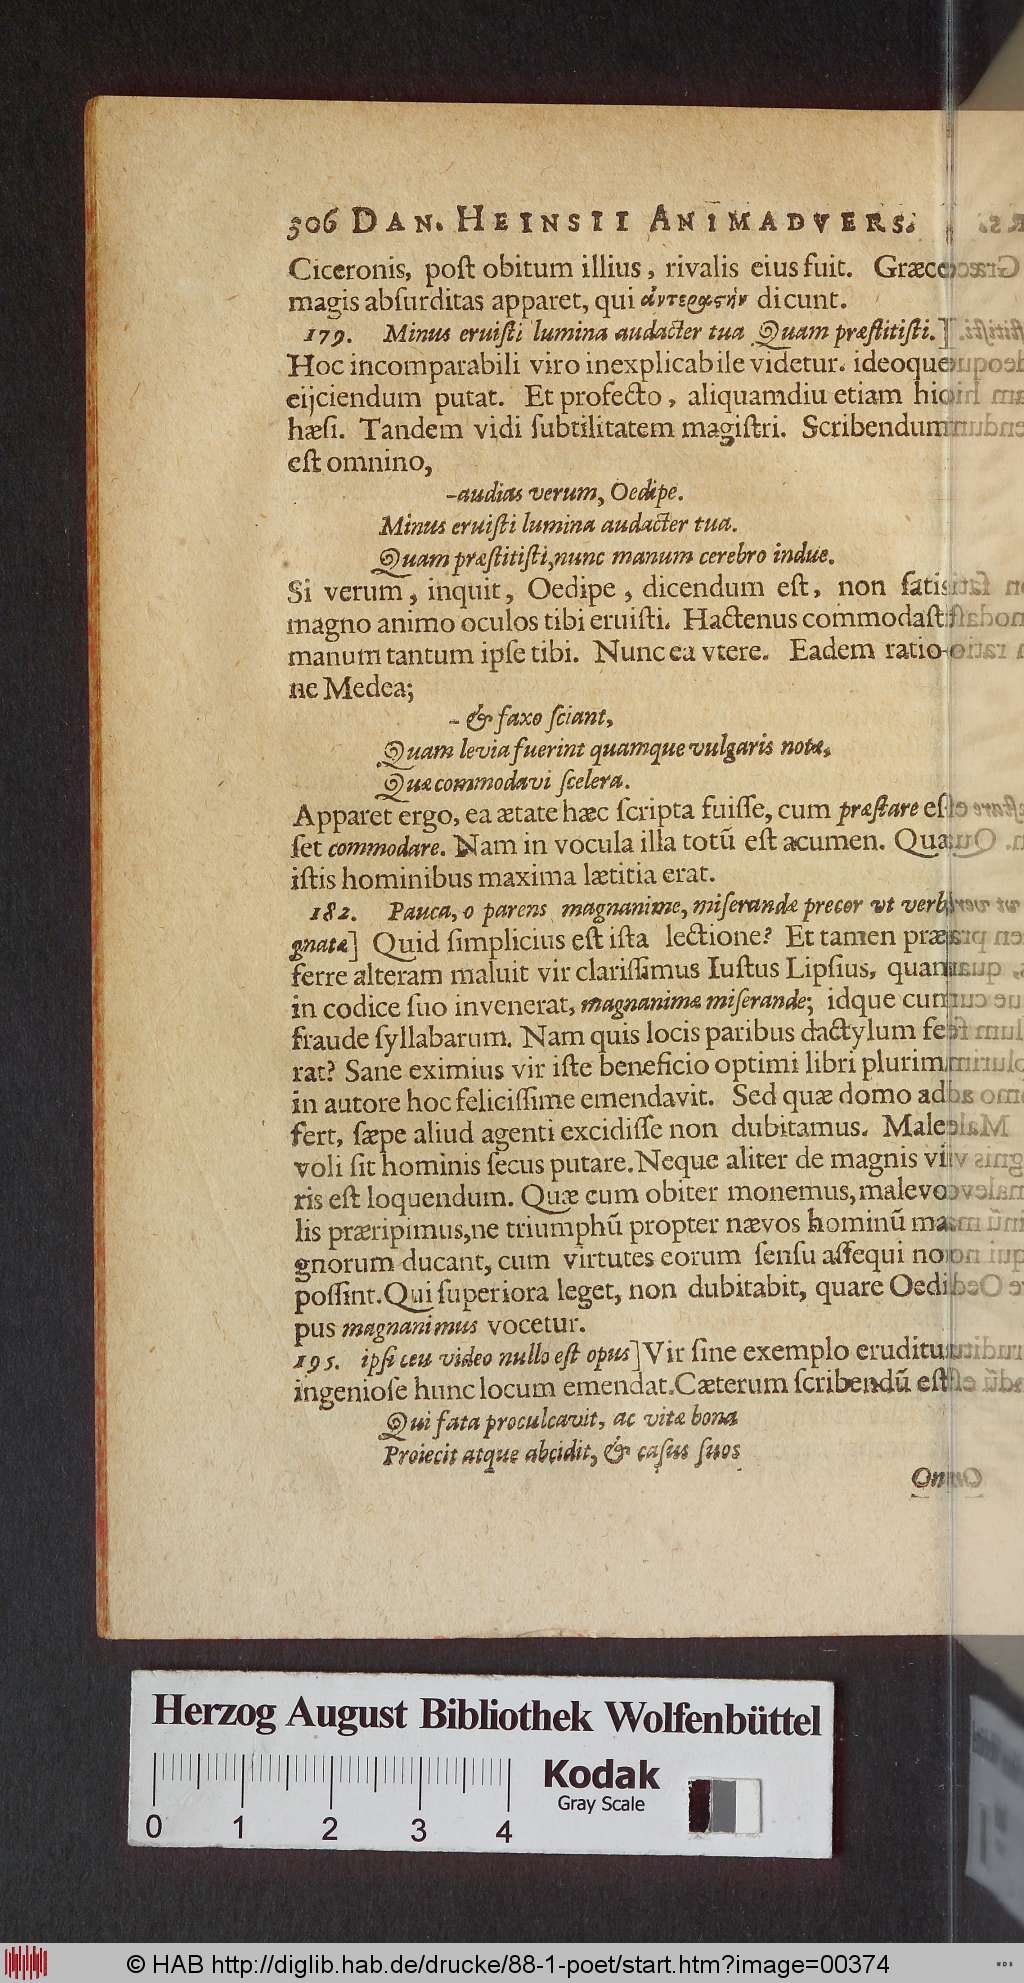 506 DAN. HEINSII ANIMADVERS.
Ciceronis, poſt obitum illius, rivalis eius fuit. Græce
magis abſurditas apparet, qui ἀντεραστήν dicunt.
179. Minus eruiſti lumina audacter tua Quam præſtitiſti.]
Hoc incomparabili viro inexplicabile videtur. ideoque
eijciendum putat. Et profecto, aliquamdiu etiam hic
hæſi. Tandem vidi ſubtilitatem magiſtri. Scribendum
eſt omnino,
-audias verum, Oedipe.
Minus eruiſti lumina audacter tua.
Quam præſtitiſti, nunc manum cerebro indue.
Si verum, inquit, Oedipe, dicendum eſt, non ſatis
magno animo oculos tibi eruiſti. Hactenus commodaſti
manum tantum ipſe tibi. Nunc ea vtere. Eadem ratio-
ne Medea;
- & faxo ſciant,
Quam levia fuerint quamque vulgaris notæ,
Quæ commodavi ſcelera.
Apparet ergo, ea ætate hæc ſcripta fuiſſe, cum præſtare eſ-
ſet commodare. Nam in vocula illa totũ eſt acumen. Quæ
iſtis hominibus maxima lætitia erat.
182. Pauca, o parens magnanime, miſerandæ precor vt verba
gnatæ] Quid ſimplicius eſt iſta lectione? Et tamen præ-
ferre alteram maluit vir clariſſimus Iuſtus Lipſius, quam
in codice ſuo invenerat, magnanimæ miſerande; idque cum
fraude ſyllabarum. Nam quis locis paribus dactylum fe-
rat? Sane eximius vir iſte beneficio optimi libri plurima
in autore hoc feliciſſime emendavit. Sed quæ domo ad-
fert, ſæpe aliud agenti excidiſſe non dubitamus. Male-
voli ſit hominis ſecus putare. Neque aliter de magnis vi-
ris eſt loquendum. Quæ cum obiter monemus, malevo-
lis præripimus, ne triumphũ propter nævos hominũ ma-
gnorum ducant, cum virtutes eorum ſenſu aſſequi non
poſſint. Qui ſuperiora leget, non dubitabit, quare Oedi-
pus magnanimus vocetur.
195. ipſi ceu video nullo eſt opus] Vir ſine exemplo eruditus
ingenioſe hunc locum emendat. Cæterum ſcribendũ eſt
Qui fata proculcavit, ac vitæ bona
Proiecit atque abcidit, & caſus ſuos
Herzog August Bibliothek Wolfenbüttel
0 1 2 3 4
Kodak
Gray Scale
© HAB http://diglib.hab.de/drucke/88-1-poet/start.htm?image=00374